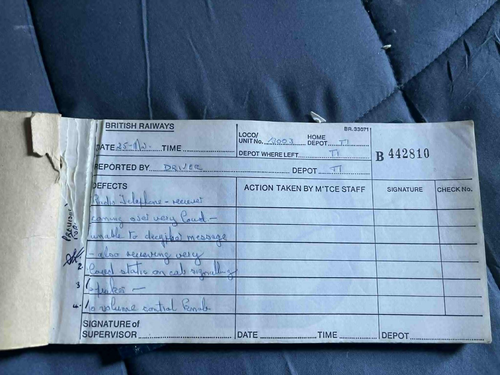 BRITISH RAILWAYS
DATE TIME
LOCO/ UNIT No.
HOME DEPOT TI
BR. 33071
DEPOT WHERE LEFT TI
B 442810
REPORTED BY DRIVER DEPOT TI
DEFECTS ACTION TAKEN BY M'TCE STAFF SIGNATURE CHECK No.
Radio Telephone - receiver
coming over very loud -
unable to decipher message
- also receiving very
2 loud static on cab signalling
3 speaker -
4 no volume control
SIGNATURE of SUPERVISOR DATE TIME DEPOT